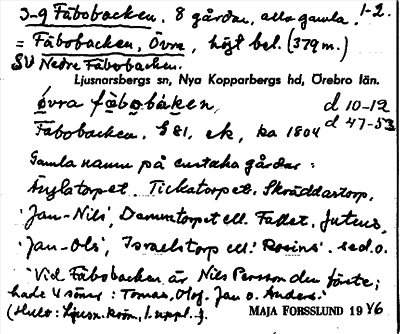 J-9 Fäbobacken. 8 gårdar, alla gamla. 1-2.
= Fäbobacken, Övra, högt bel. (379 m.)
SV Nedre Fäbobacken.
Ljusnarsbergs sn, Nya Kopparbergs hd, Örebro län.
övra fàbobàken, d 10-12
Fäbobacken. § 81, ek, ka 1804 d 47-53
Gamla namn på enstaka gårdar:
Änglatorpet, Tickatorpet, Skräddartorp,
'Jan-Nils', Dammtorpet ell. Fallet, Jutens,
'Jan-Ols', Israelstorp ell. Rosins. se d.o.
"Vid Fäbobacken är Nils Persson den förste;
hade 4 söner: Tomas, Olof, Jan o. Anders."
(Hult: Ljusn. krön., 1. uppl.) MAJA FORSSLUND 1946